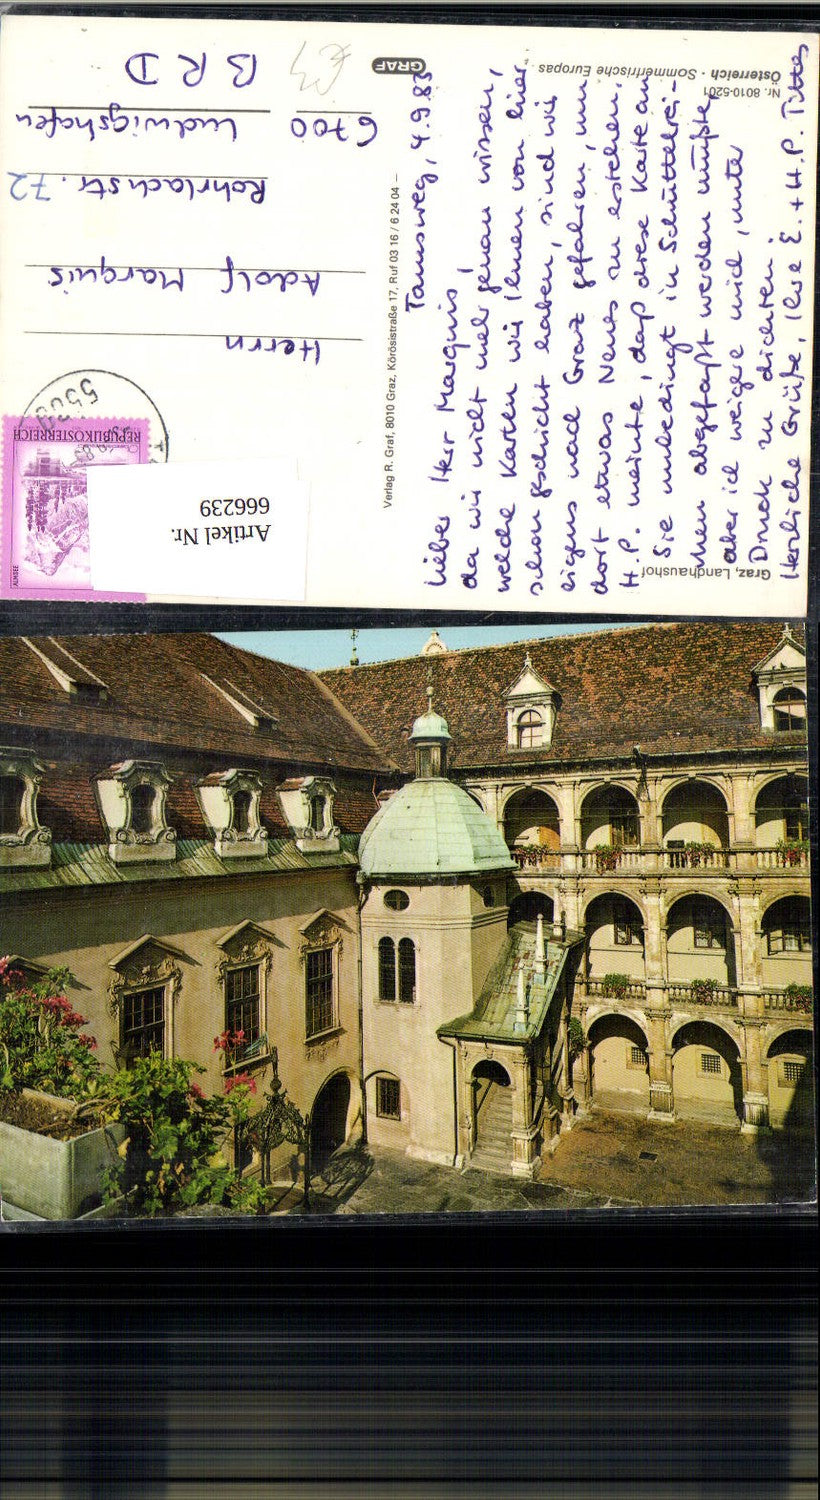 Graz, Landhaushof
Nr. 8010-5201
Österreich · Sommerfrische Europas
GRAF
Verlag R. Graf, 8010 Graz, Körösistraße 17, Ruf 03 16 / 6 24 04 –
Tamsweg, 4.9.83
Lieber Herr Marquis,
da wir nicht mehr genau wissen,
welche Karten wir Ihnen von hier
schon geschickt haben, sind wir
eigens nach Graz gefahren, um
dort etwas Neues zu erstehen.
H.P. meinte, daß diese Karte an
Sie unbedingt in Schüttelrei-
men abgefaßt werden müßte,
aber ich weigere mich, unter
Druck zu dichten.
Herzliche Grüße, Ihre E. + H.P. Tittes
REPUBLIK ÖSTERREICH
ALMSEE
Herrn
Adolf Marquis
Rohrlachstr. 72
6700 Ludwigshafen
B R D
Artikel Nr.
666239